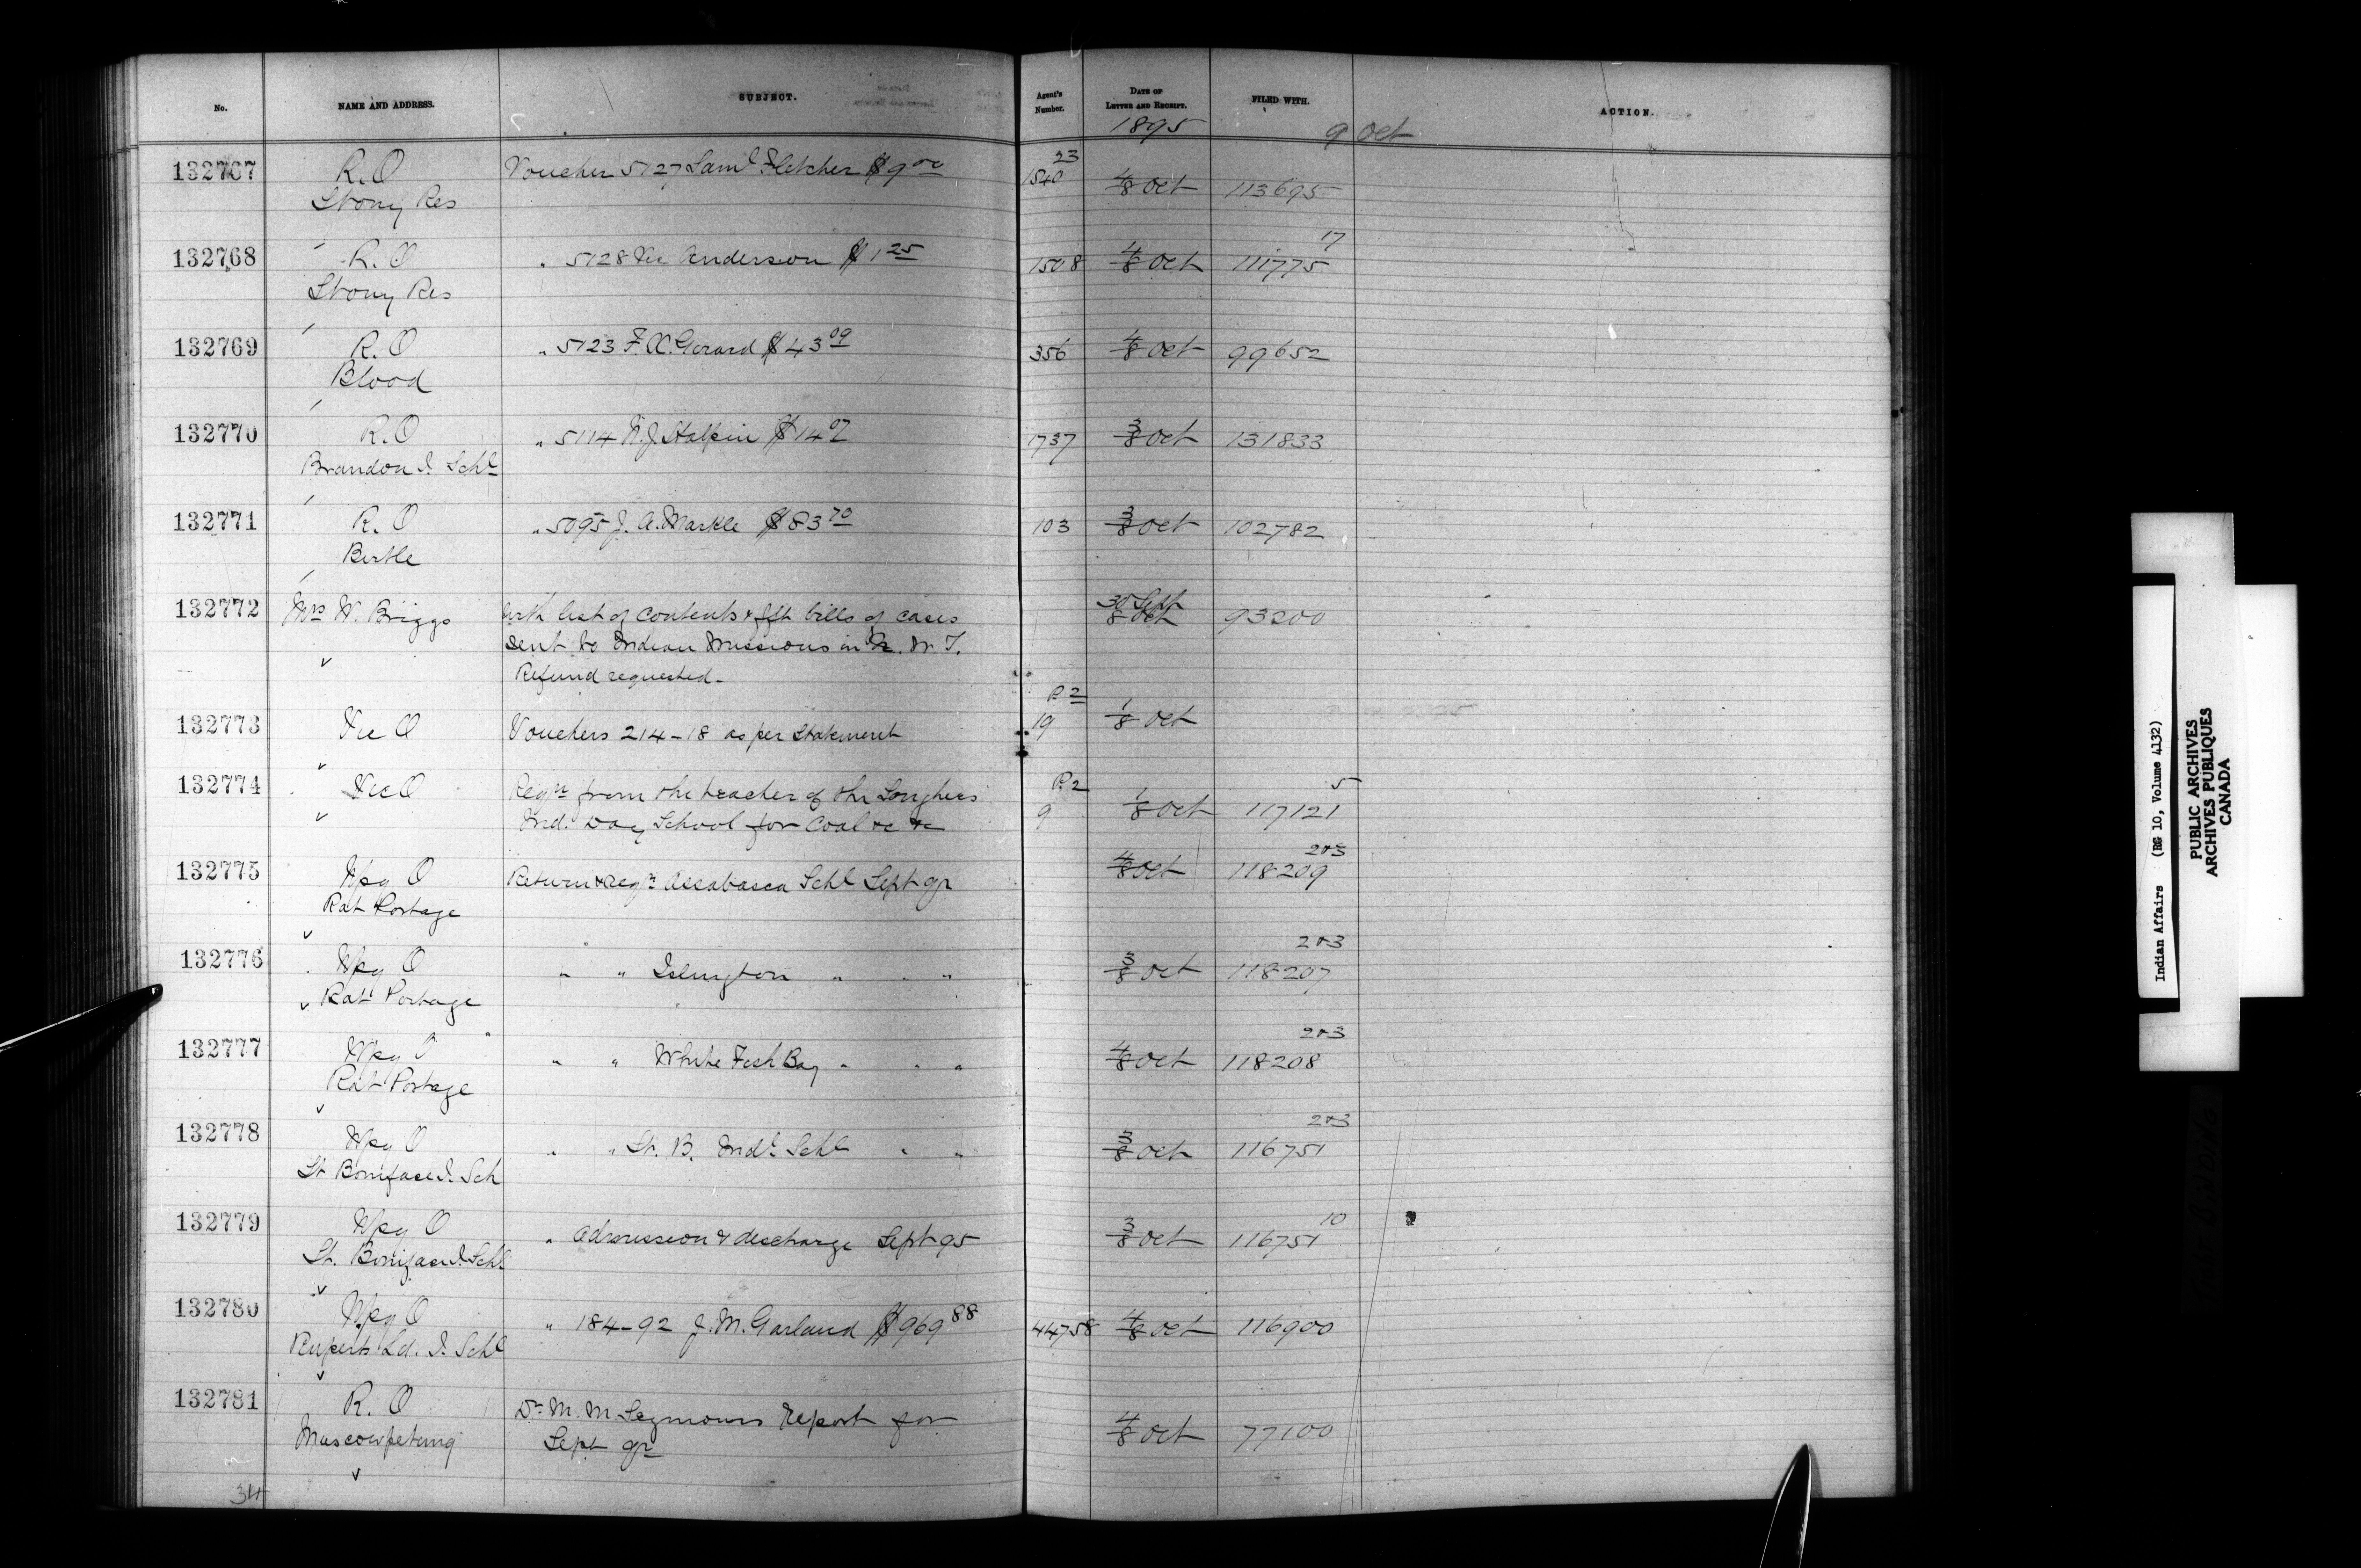 No. NAME AND ADDRESS. SUBJECT. Agent's Number. DATE OF LETTER AND RECEIPT. FILED WITH. ACTION.
1895 9 Oct
132767 R.O Voucher 5127 Saml Fletcher $9 00 23
1540 4/8 Oct 113695
Stony Res
132768 R.O " 5128 Anderson $1 25 1508 4/8 Oct 111775 17
Stony Res
132769 R.O " 5123 F.A. Gerard $43 09 356 4/8 Oct 99652
Blood
132770 R.O " 5114 N.J. Halpin $14 07 1737 3/8 Oct 131833
Brandon I. Schl
132771 R.O " 5095 J.A. Markle $83 70 103 3/8 Oct 102782
Birtle
132772 Mrs W. Briggs With list of contents & fft bills of cases 30 Sept 8 Oct 93200
sent to Indian Missions in N.W.T.
Refund requested.
132773 Vic O Vouchers 214-18 as per statement P.2 19 1/8 Oct
132774 Vic O Reqn from the teacher of the Songhees P.2 9 1/8 Oct 117121 5
Ind. Day School for coal &c &c
132775 Wpg O Return & Reqn Assabasca Schl Sept qr 4/8 Oct 118209 2&3
Rat Portage
132776 Wpg O " " Islington " " " 3/8 Oct 118207 2&3
Rat Portage
132777 Wpg O " " White Fish Bay " " " 4/8 Oct 118208 2&3
Rat Portage
132778 Wpg O " " St. B. Indl Schl " " 3/8 Oct 116751 2&3
St Boniface I. Sch
132779 Wpg O " admission & discharge Sept 95 3/8 Oct 116751 10
St. Boniface I. Schl
132780 Wpg O " 184-92 J.M. Garland $969 88 44758 4/8 Oct 116900
Ruperts Ld. I. Schl
132781 R.O Dr M.M Seymours report for 4/8 Oct 77100
Muscowpetung Sept qr
34
Indian Affairs (RG 10, Volume 4132)
PUBLIC ARCHIVES
ARCHIVES PUBLIQUES
CANADA